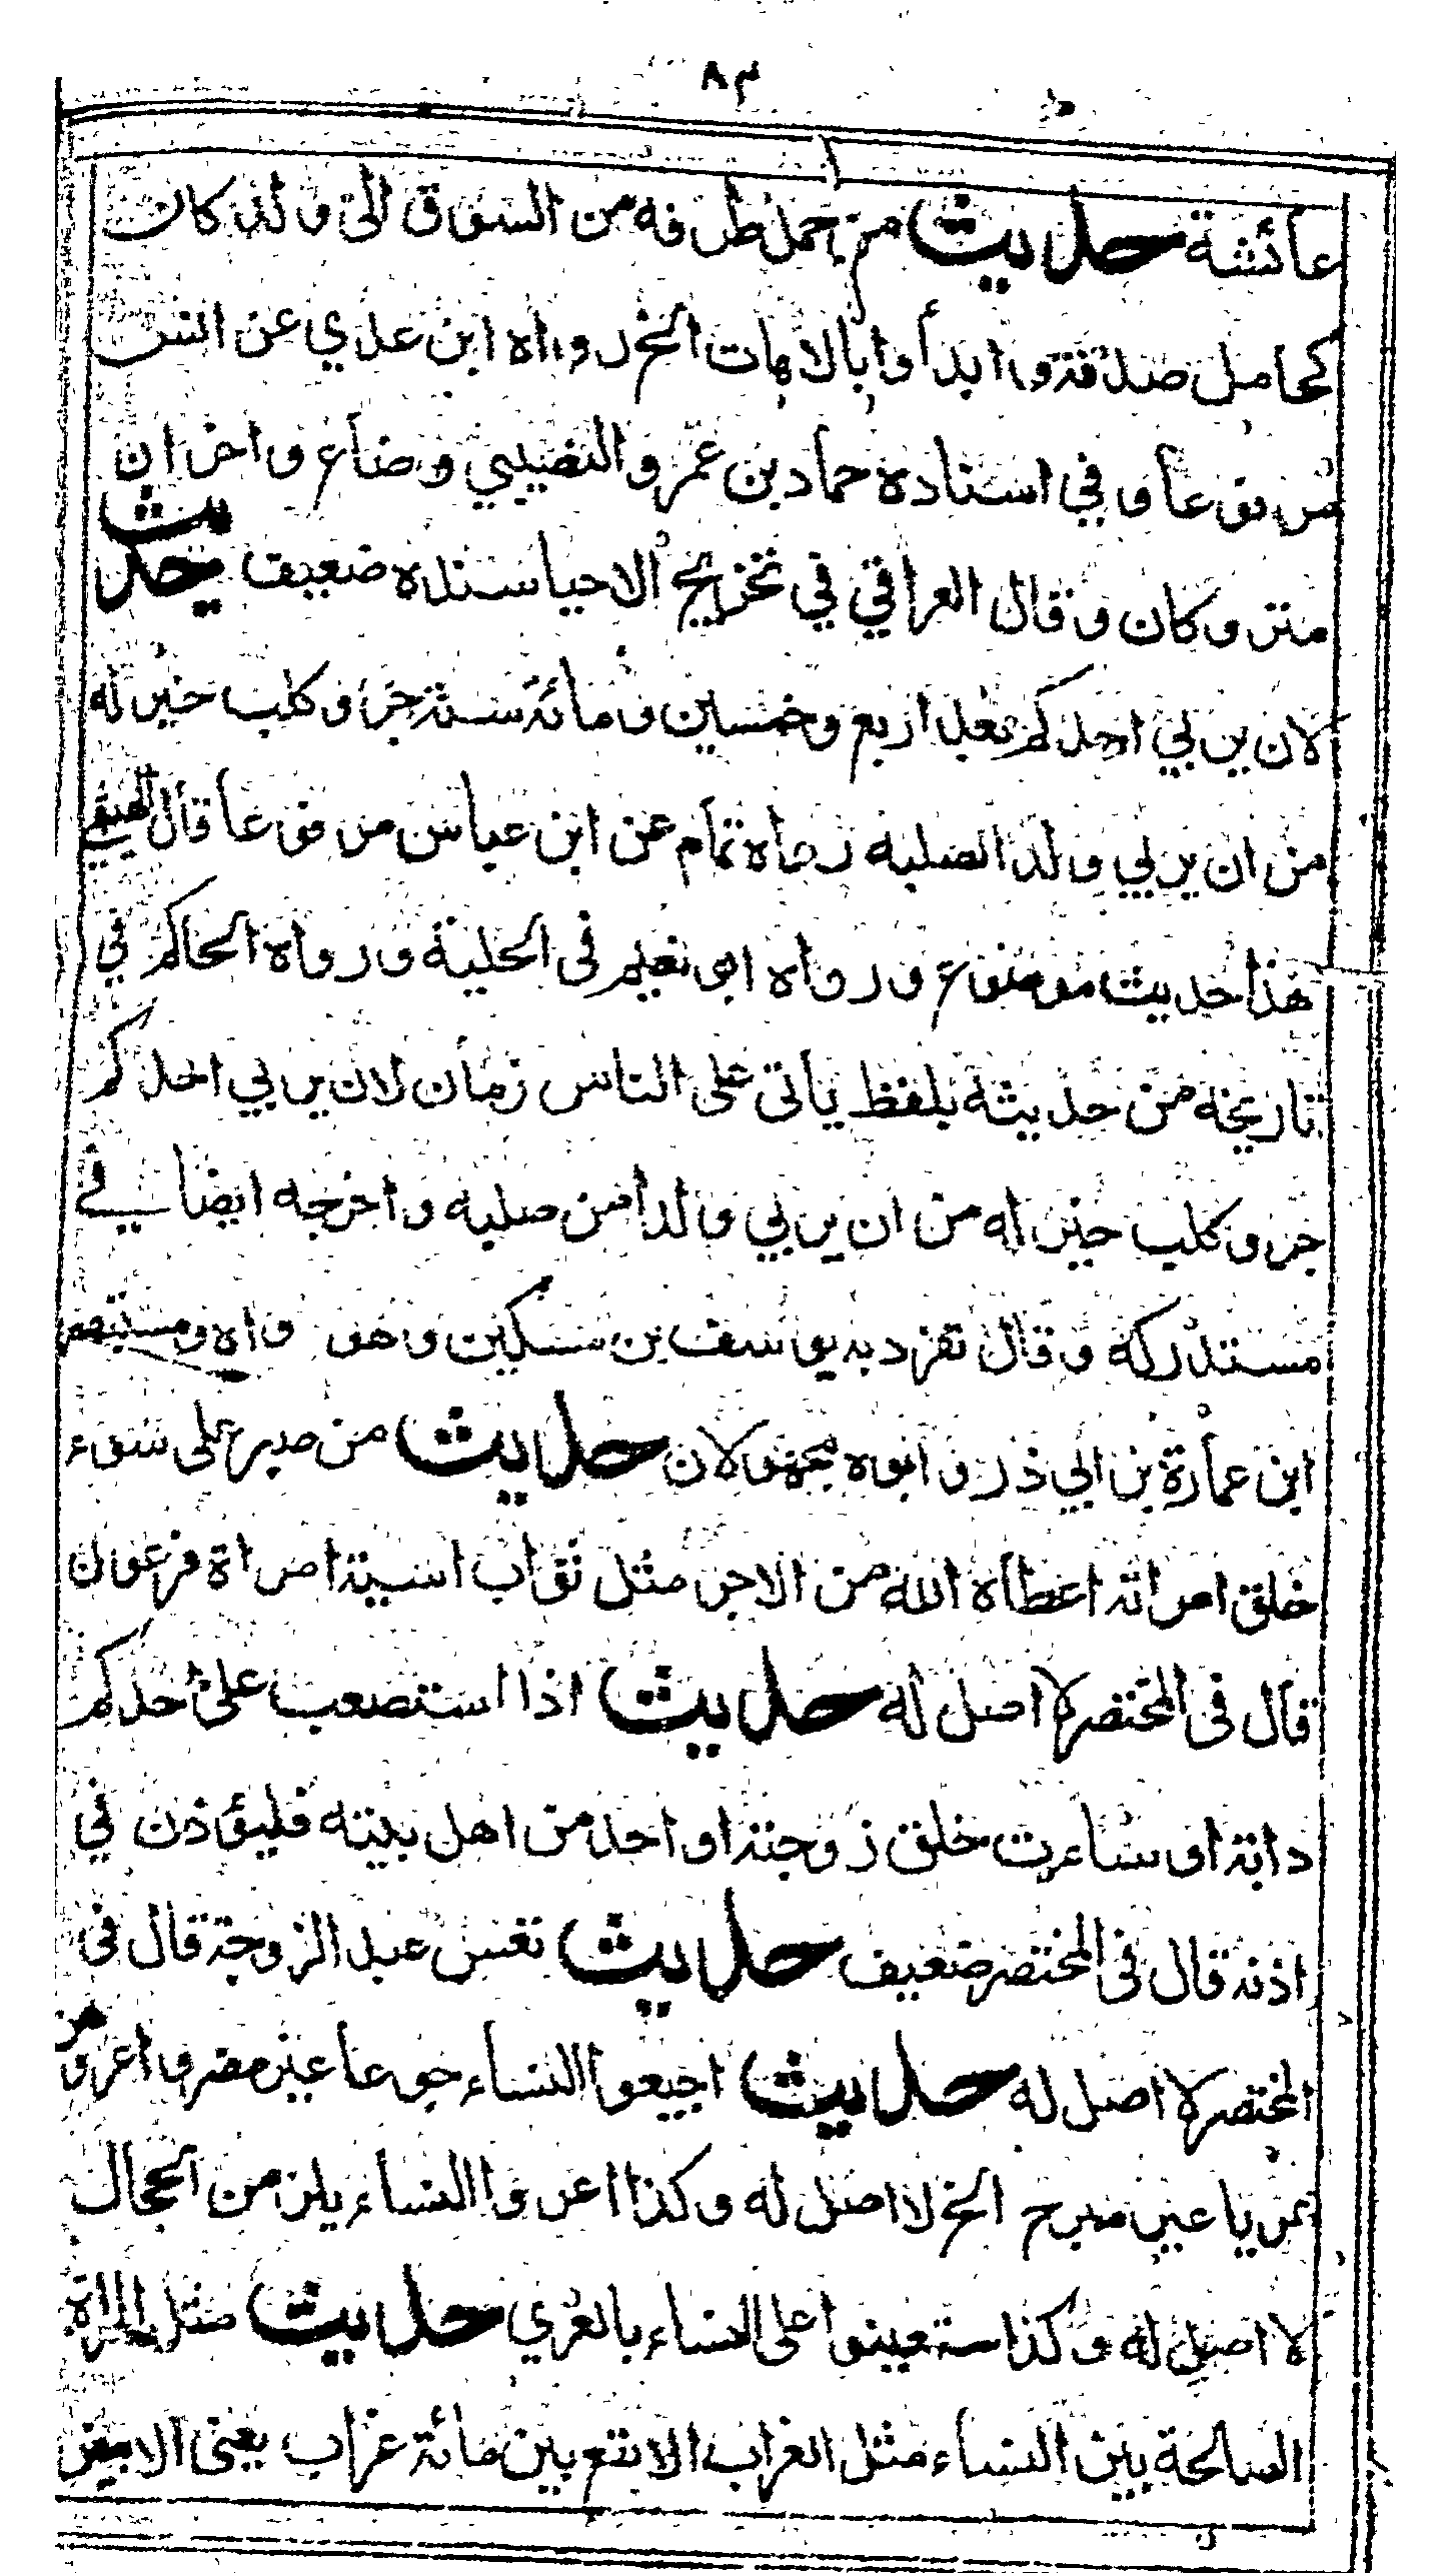 ٨٣
عائشة حديث من حمل طرفه من السوق الى ولده كان
كحامل صدقة وابدأوا بالاناث الخ رواه ابن عدي عن انس
مرفوعا وفي اسناده حماد بن عمرو النصيبي وضاع واخران
متروكان وقال العراقي في تخريج الاحيا سنده ضعيف حديث
لان يربي احدكم بعد اربع وخمسين ومائة سنة جرو كلب خير له
من ان يربي ولد الصلبه رواه تمام عن ابن عباس مرفوعا قال
هذا حديث موضوع ورواه ابو نعيم في الحلية ورواه الحاكم في
تاريخه من حديثه بلفظ يأتى على الناس زمان لان يربي احدكم
جرو كلب خير له من ان يربي ولدا من صلبه واخرجه ايضا في
مستدركه وقال تفرد به يوسف بن سكين وهو واه ومستهم
ابن عمارة بن ابي ذر وابوه مجهولان حديث من صبر على سوء
خلق امراته اعطاه الله من الاجر مثل ثواب اسية امراة فرعون
قال فى المختصر لا اصل له حديث اذا استصعب على احدكم
دابة او ساءت خلق زوجته او احد من اهل بيته فليؤذن في
اذنه قال فى المختصر ضعيف حديث تعس عبد الزوجة قال فى
المختصر لا اصل له حديث اجيعوا النساء جوعا غير مضر واعروهن
عريا غير مبرح الخ لا اصل له وكذا اعروا النساء يلزمن الحجال
لا اصل له وكذا استعينوا على النساء بالعري حديث مثل المراة
الصالحة بين النساء مثل الغراب الابقع بين مائة غراب يعنى الابيض